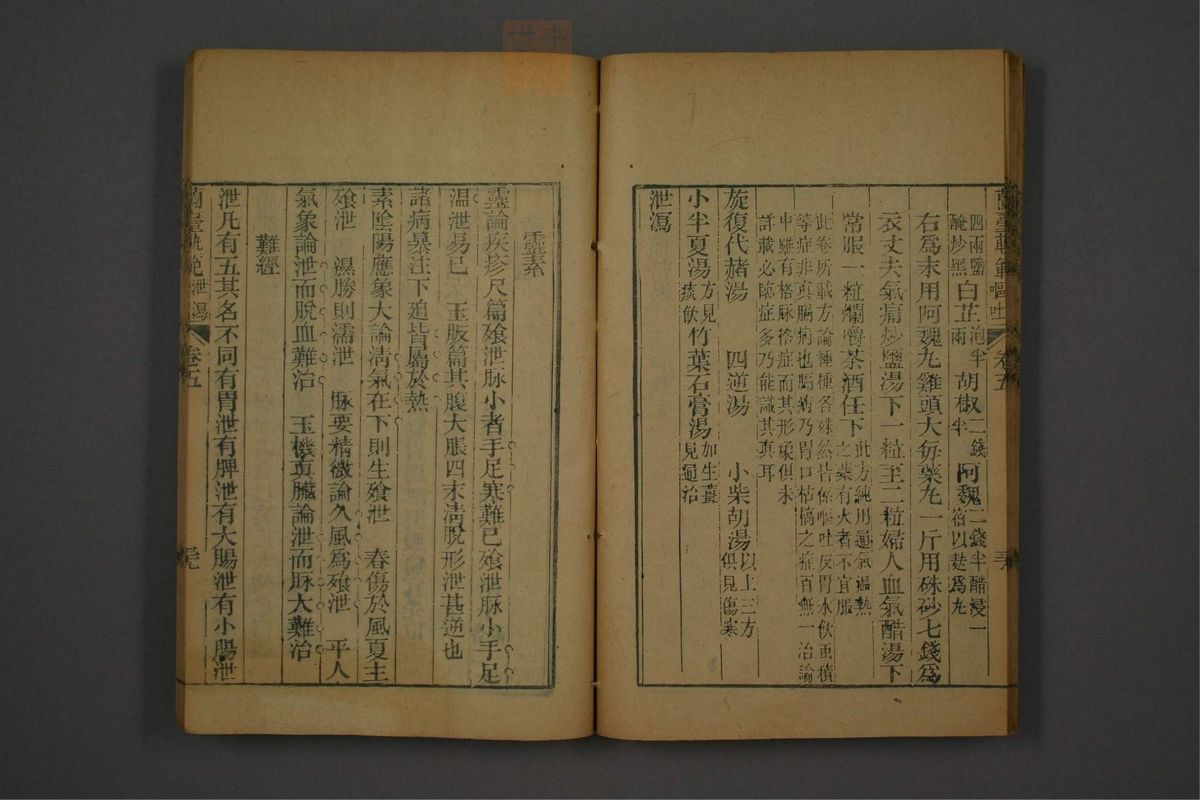 蘭臺軌範 嘔吐 卷五
四兩鹽醃炒黑白芷泡半兩胡椒二錢半阿魏二錢半醋浸一宿以麪爲丸
右爲末用阿魏丸雞頭大每藥丸一斤用硃砂七錢爲
衣丈夫氣痛炒鹽湯下一粒至二粒婦人血氣醋湯下
常服一粒爛嚼茶酒任下此方純用通氣溫熱之藥有火者不宜服
此卷所載方論種種各殊然皆係嘔吐反胃水飲虫積
等症非真膈病也膈病乃胃口枯槁之症百無一治論
中雖有格脉格症而其形象俱未
詳載必臨症多乃能識其真耳
旋復代赭湯 四逆湯 小柴胡湯以上三方俱見傷寒
小半夏湯方見痰飲竹葉石膏湯加生薑見通治
泄瀉
靈素
靈論疾疹尺篇飱泄脉小者手足寒難已飱泄脉小手足
溫泄易已 玉版篇其腹大脹四末淸脫形泄甚逆也
諸病暴注下迫皆屬於熱
素陰陽應象大論淸氣在下則生飱泄 春傷於風夏主
飱泄 濕勝則濡泄 脉要精微論久風爲飱泄 平人
氣象論泄而脫血難治 玉機真臟論泄而脉大難治
難經
泄凡有五其名不同有胃泄有脾泄有大腸泄有小腸泄
蘭臺軌範 泄瀉 卷五